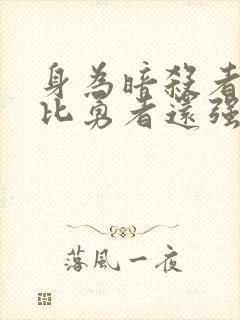 身為暗殺者
比勇者還強
落風一夜